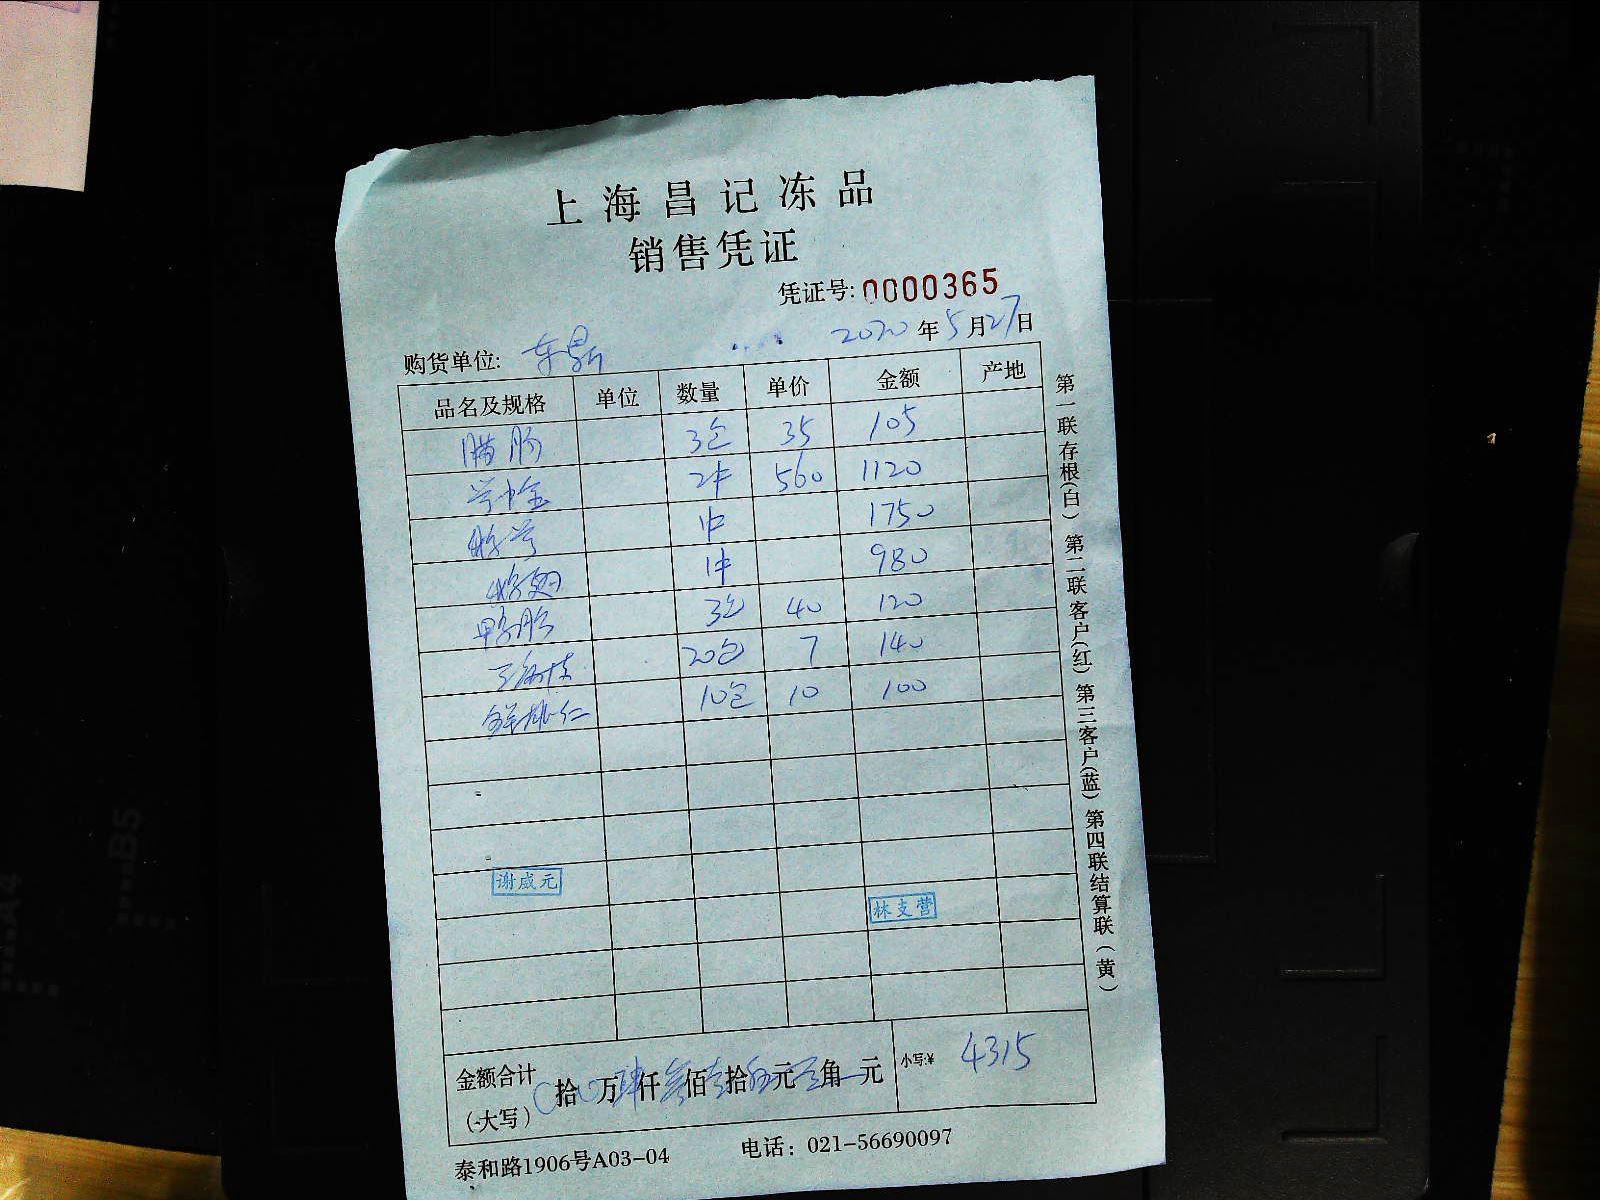 上海昌记冻品
销售凭证
凭证号: 0000365
购货单位: 东鼎 2020年5月27日
品名及规格 单位 数量 单价 金额 产地
腊肠 3包 35 105
2件 560 1120
1件 1750
1件 980
鸭肠 3包 40 120
20包 7 140
鲜桃仁 10包 10 100
谢咸元
林支营
金额合计 拾 万肆仟叁佰壹拾伍元 角 元 小写:¥ 4315
(大写)
泰和路1906号A03-04 电话：021-56690097
第一联存根(白) 第二联客户(红) 第三客户(蓝) 第四联结算联(黄)
B5
A4